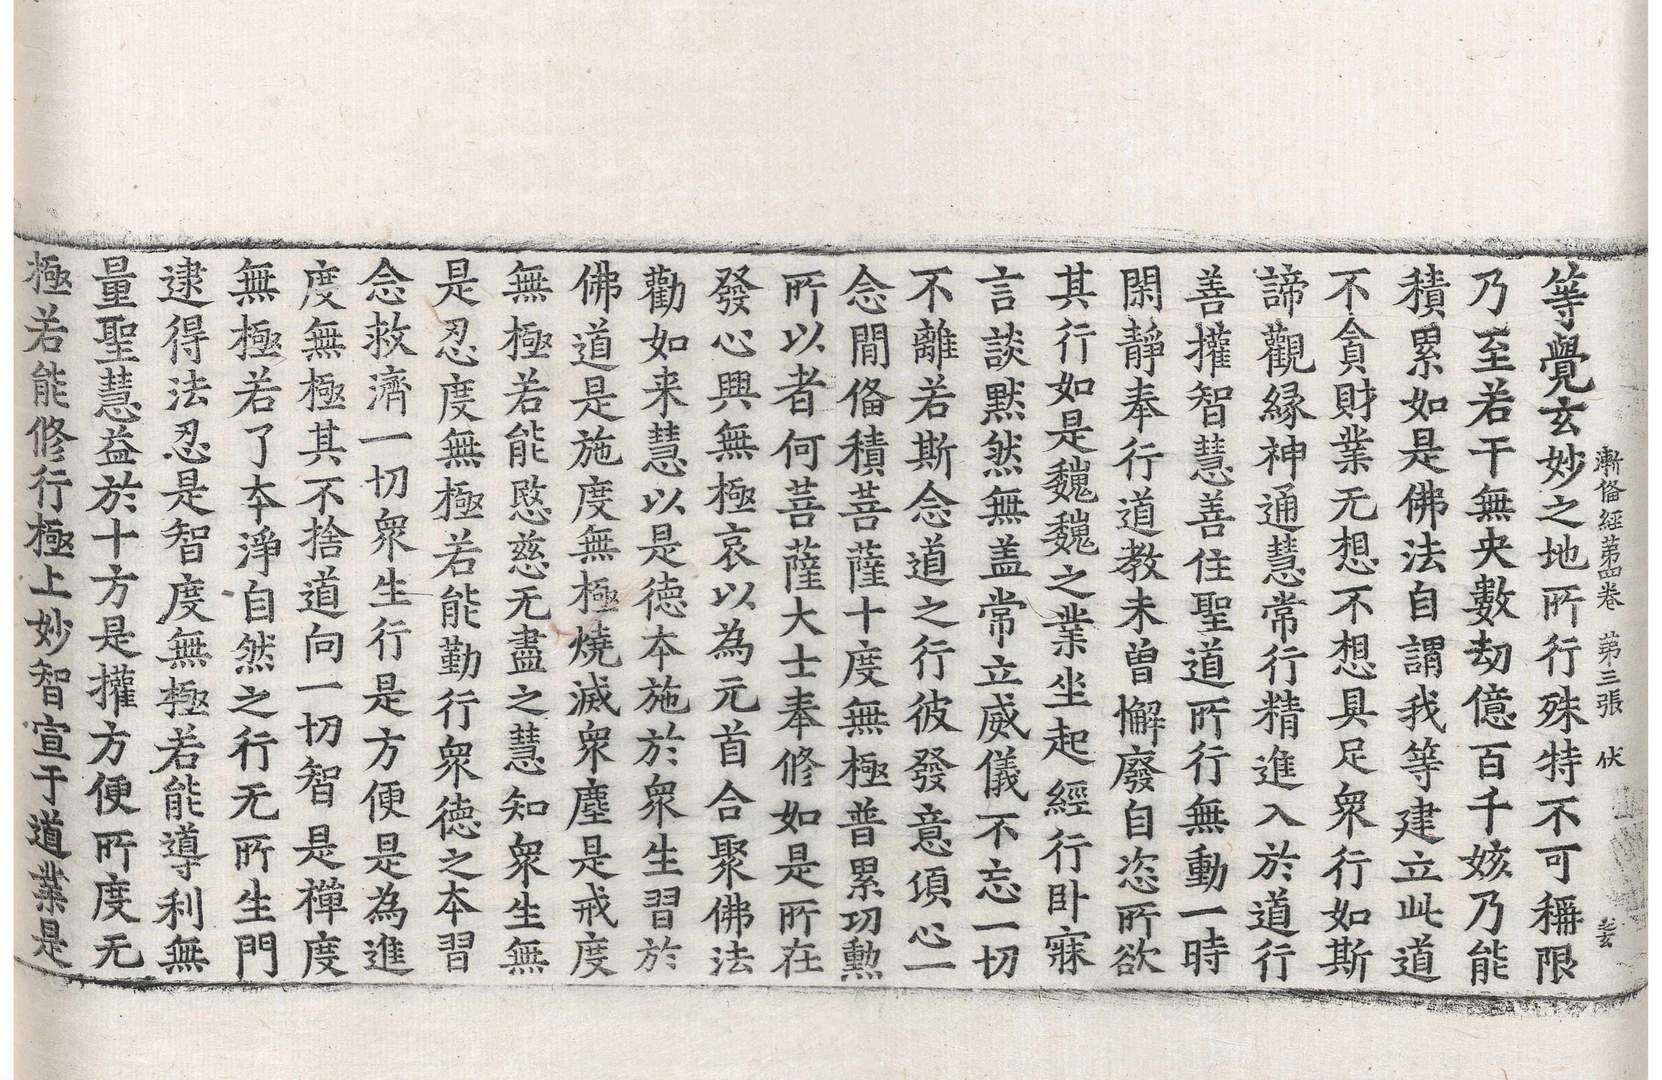 漸俻經第四卷　第三張　伏
等覺玄妙之地所行殊特不可稱限
乃至若干無央數劫億百千姟乃能
積累如是佛法自謂我等建立此道
不貪財業无想不想具足衆行如斯
諦觀緣神通慧常行精進入於道行
善權智慧善住聖道所行無動一時
閑靜奉行道教未曾懈廢自恣所欲
其行如是巍巍之業坐起經行卧寐
言談默然無盖常立威儀不忘一切
不離若斯念道之行彼發意須心一
念閒俻積菩薩十度無極普累功勲
所以者何菩薩大士奉修如是所在
發心興無極哀以為元首合聚佛法
勸如来慧以是德本施於衆生習於
佛道是施度無極燒滅衆塵是戒度
無極若能愍慈无盡之慧知衆生無
是忍度無極若能勤行衆德之本習
念救濟一切衆生行是方便是為進
度無極其不捨道向一切智是禪度
無極若了本淨自然之行无所生門
逮得法忍是智度無極若能導利無
量聖慧益於十方是權方便所度无
極若能修行極上妙智宣于道業是